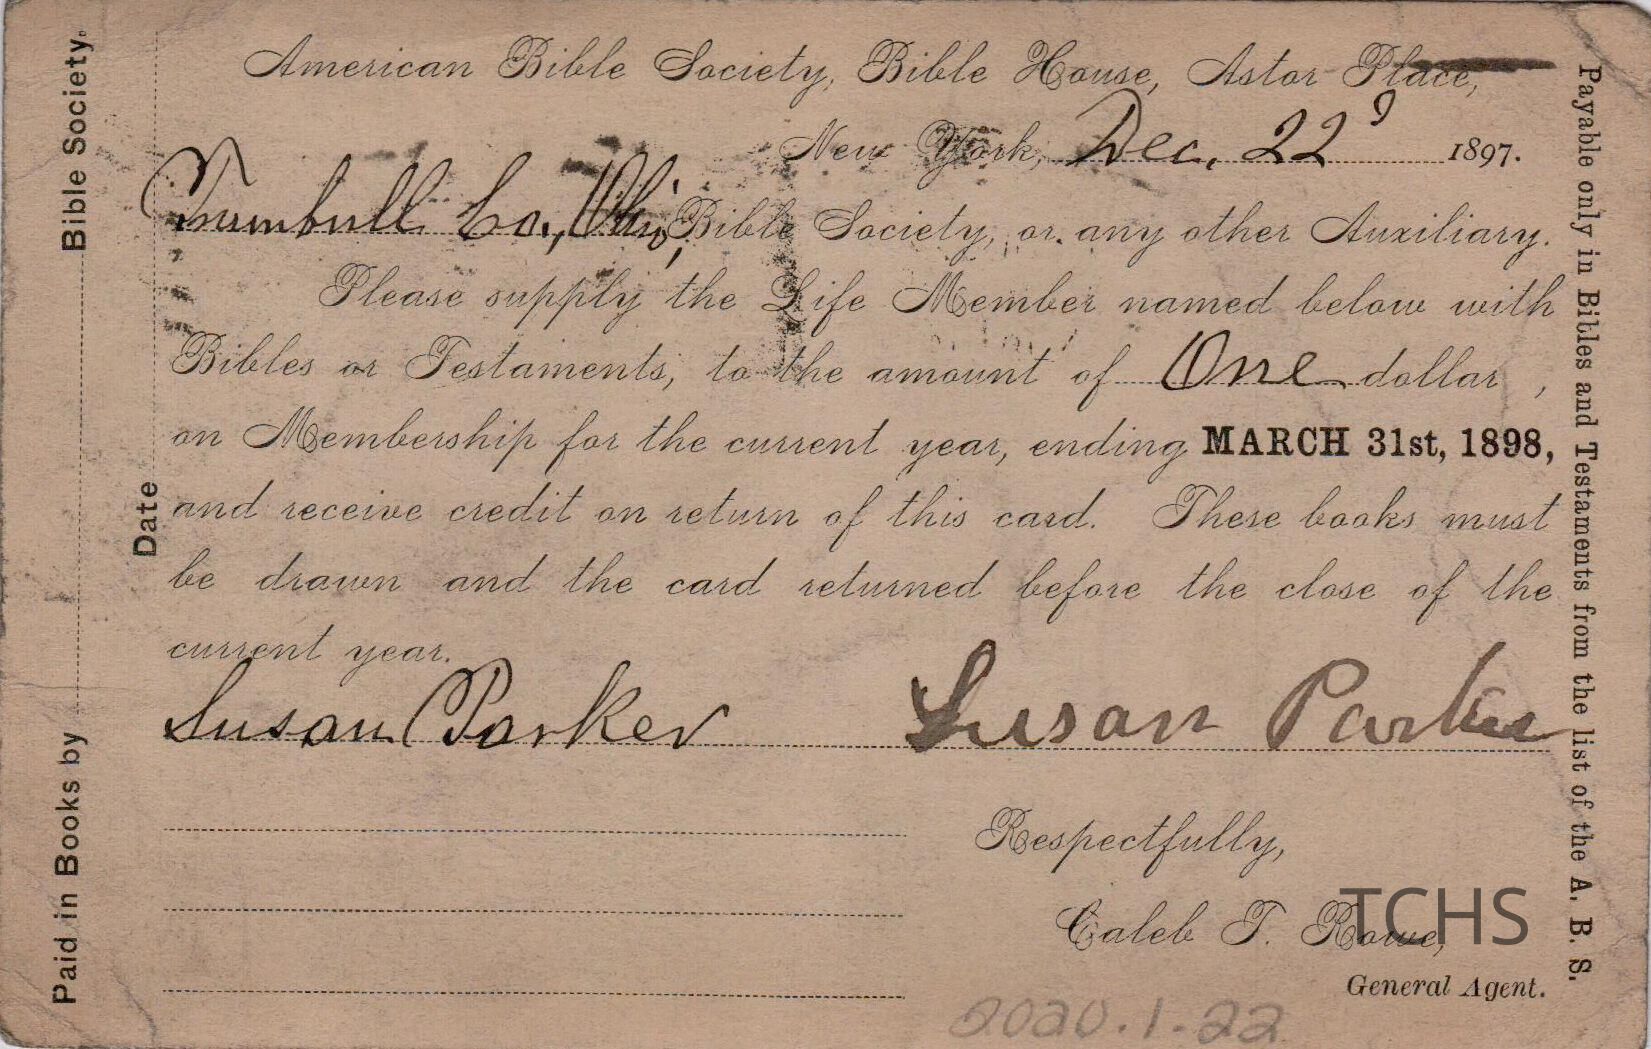 American Bible Society, Bible House, Astor Place,
New York, Dec. 22d 1897.
Trumbull Co., Ohio, Bible Society, or any other Auxiliary.
Please supply the Life Member named below with
Bibles or Testaments, to the amount of One dollar ,
on Membership for the current year, ending MARCH 31st, 1898,
and receive credit on return of this card. These books must
be drawn and the card returned before the close of the
current year.
Susan Parker
Susan Parker
Respectfully,
Caleb T. Rowe,
General Agent.
TCHS
2020.1.22
Paid in Books by Bible Society.
Date
Payable only in Bibles and Testaments from the list of the A. B. S.